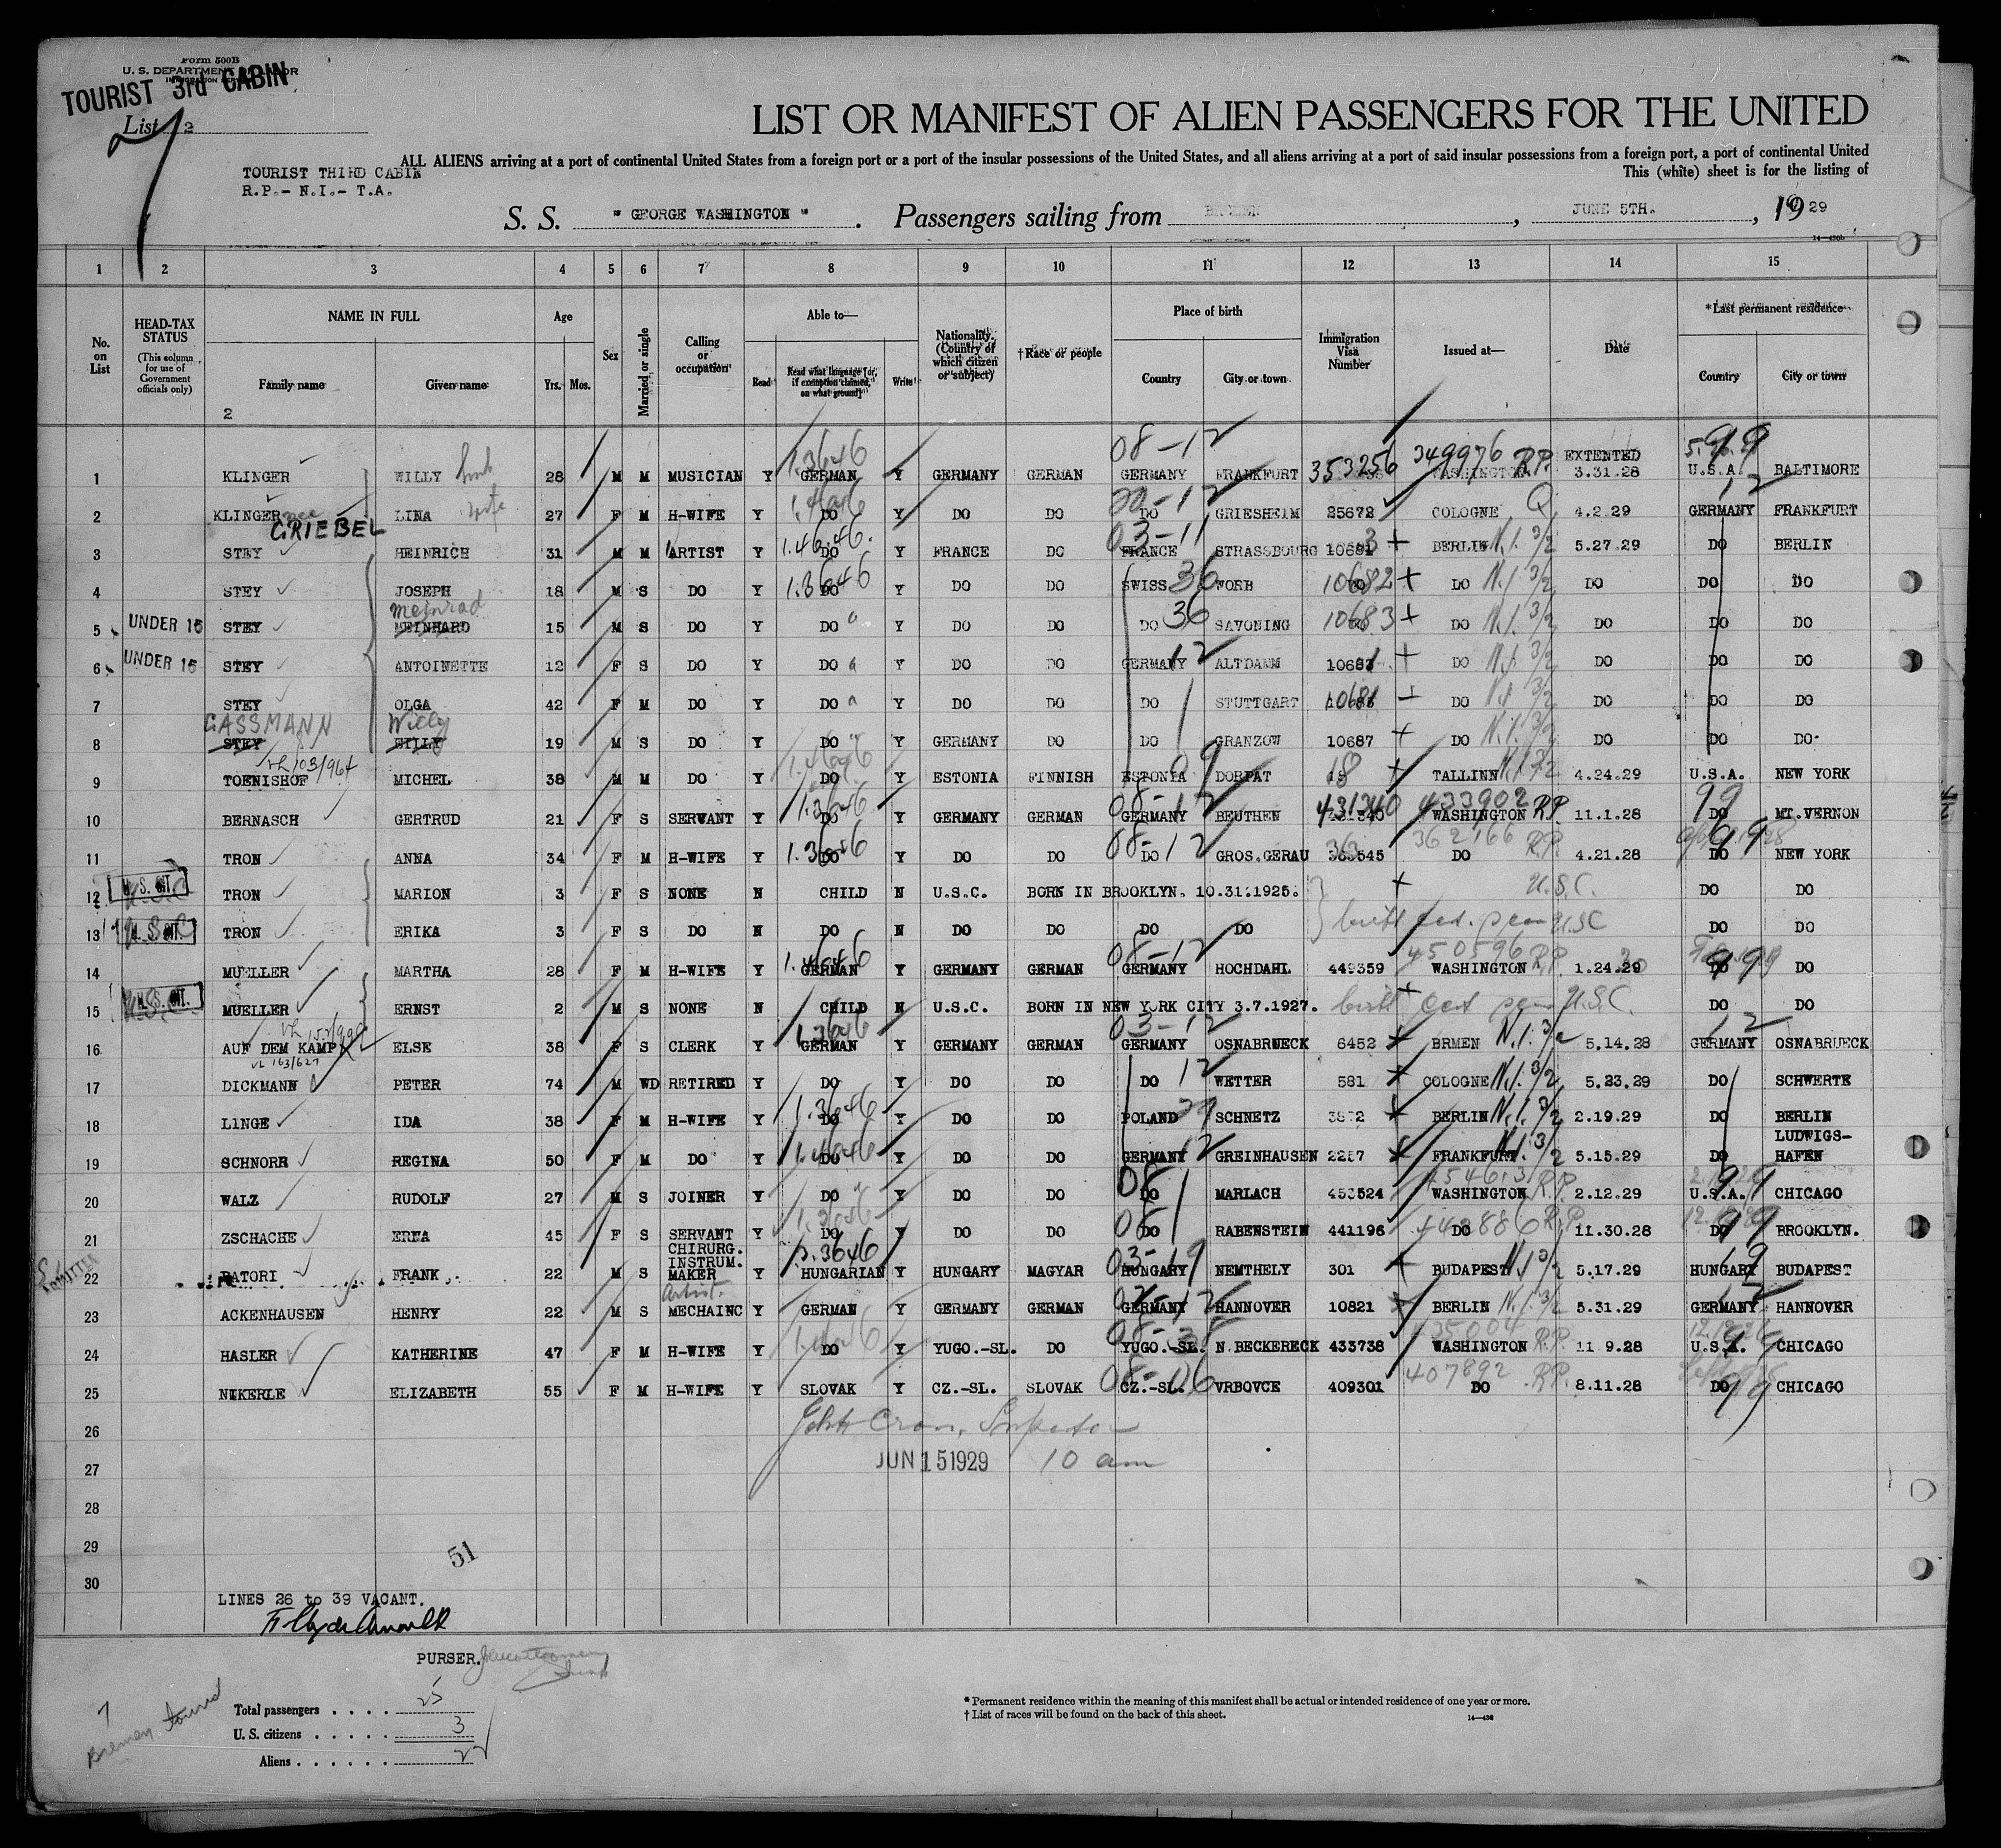 Form 500B
U. S. DEPARTMENT OF LABOR
IMMIGRATION SERVICE
TOURIST 3rd CABIN
List 2
7
LIST OR MANIFEST OF ALIEN PASSENGERS FOR THE UNITED
ALL ALIENS arriving at a port of continental United States from a foreign port or a port of the insular possessions of the United States, and all aliens arriving at a port of said insular possessions from a foreign port, a port of continental United
This (white) sheet is for the listing of
TOURIST THIRD CABIN
R.P.- N.I.- T.A.
S. S. " GEORGE WASHINGTON ". Passengers sailing from BREMEN, JUNE 5TH., 1929
14-430b
1 2 3 4 5 6 7 8 9 10 11 12 13 14 15
No. on List
HEAD-TAX STATUS (This column for use of Government officials only)
NAME IN FULL Family name Given name
Age Yrs. Mos.
Sex
Married or single
Calling or occupation
Able to— Read Read what language [or, if exemption claimed, on what ground] Write
Nationality. (Country of which citizen or subject)
†Race or people
Place of birth Country City or town
Immigration Visa Number
Issued at—
Date
*Last permanent residence Country City or town
2
1 KLINGER WILLY 28 M M MUSICIAN Y GERMAN Y GERMANY GERMAN GERMANY FRANKFURT 353256 349976 WASHINGTON R.P. EXTENTED 3.31.28 U.S.A. BALTIMORE
2 KLINGER nee GRIEBEL LINA wife 27 F M H-WIFE Y DO Y DO DO DO GRIESHEIM 25672 COLOGNE Q 4.2.29 GERMANY FRANKFURT
3 STEY HEINRICH 31 M M ARTIST Y DO Y FRANCE DO FRANCE STRASSBOURG 10681 BERLIN N.I. 3/2 5.27.29 DO BERLIN
4 STEY JOSEPH 18 M S DO Y DO Y DO DO SWISS WORB 10682 DO N.I. 3/2 DO DO DO
5 UNDER 16 STEY MEINHARD Meinrad 15 M S DO Y DO Y DO DO DO SAVONING 10683 DO N.I. 3/2 DO DO DO
6 UNDER 16 STEY ANTOINETTE 12 F S DO Y DO Y DO DO GERMANY ALTDAMM DO N.I. 3/2 DO DO DO
7 STEY OLGA 42 F M DO Y DO Y DO DO DO STUTTGART DO N.I. 3/2 DO DO DO
8 GASSMANN STEY Willy 19 M S DO Y DO Y GERMANY DO DO GRANZOW 10687 DO N.I. 3/2 DO DO DO
9 TOENISHOF MICHEL 38 M M DO Y DO Y ESTONIA FINNISH ESTONIA DORPAT 18 TALLINN N.I. 3/2 4.24.29 U.S.A. NEW YORK
10 BERNASCH GERTRUD 21 F S SERVANT Y DO Y GERMANY GERMAN GERMANY BEUTHEN 431340 433902 WASHINGTON R.P. 11.1.28 DO MT.VERNON
11 TRON ANNA 34 F M H-WIFE Y DO Y DO DO DO GROS.GERAU 363545 362166 DO R.P. 4.21.28 DO NEW YORK
12 U.S. CIT. TRON MARION 3 F S NONE N CHILD N U.S.C. BORN IN BROOKLYN. 10.31.1925. U.S.C. DO DO
13 U.S. CIT. TRON ERIKA 3 F S DO N DO N DO DO DO DO USC DO DO
14 MUELLER MARTHA 28 F M H-WIFE Y GERMAN Y GERMANY GERMAN GERMANY HOCHDAHL 449359 450596 WASHINGTON R.P. 1.24.29 DO DO
15 U.S. CIT. MUELLER ERNST 2 M S NONE N CHILD N U.S.C. BORN IN NEW YORK CITY 3.7.1927. U.S.C. DO DO
16 AUF DEM KAMP ELSE 38 F S CLERK Y GERMAN Y GERMANY GERMAN GERMANY OSNABRUECK 6452 BRMEN N.I. 3/2 5.14.28 GERMANY OSNABRUECK
17 DICKMANN PETER 74 M WD RETIRED Y DO Y DO DO DO WETTER 581 COLOGNE N.I. 3/2 5.23.29 DO SCHWERTE
18 LINGE IDA 38 F M H-WIFE Y DO Y DO DO POLAND SCHNETZ 3872 BERLIN N.I. 3/2 2.19.29 DO BERLIN
19 SCHNORR REGINA 50 F M DO Y DO Y DO DO GERMANY GREINHAUSEN 2257 FRANKFURT N.I. 3/2 5.15.29 DO LUDWIGS-HAFEN
20 WALZ RUDOLF 27 M S JOINER Y DO Y DO DO DO MARLACH 453524 454613 WASHINGTON R.P. 2.12.29 U.S.A. CHICAGO
21 ZSCHACHE ERNA 45 F S SERVANT Y DO Y DO DO DO RABENSTEIN 441196 DO R.P. 11.30.28 DO BROOKLYN.
22 BATORI FRANK 22 M S CHIRURG. INSTRUM. MAKER Y HUNGARIAN Y HUNGARY MAGYAR HUNGARY NEMTHELY 301 BUDAPEST N.I. 3/2 5.17.29 HUNGARY BUDAPEST
23 ACKENHAUSEN HENRY 22 M S Artist. MECHAINC Y GERMAN Y GERMANY GERMAN GERMANY HANNOVER 10821 BERLIN N.I. 3/2 5.31.29 GERMANY HANNOVER
24 HASLER KATHERINE 47 F M H-WIFE Y DO Y YUGO.-SL. DO YUGO.-SL. N.BECKERECK 433738 435004 WASHINGTON R.P. 11 9.28 U.S.A. CHICAGO
25 NIKERLE ELIZABETH 55 F M H-WIFE Y SLOVAK Y CZ.-SL. SLOVAK CZ.-SL. VRBOVCE 409301 407892 DO R.P. 8.11.28 DO CHICAGO
26 Inspector
27 JUN 15 1929 10 am
28
29
30
51
LINES 26 to 39 VACANT.
PURSER.
Bremen tourd
Total passengers 25
U. S. citizens 3
Aliens 22
* Permanent residence within the meaning of this manifest shall be actual or intended residence of one year or more.
† List of races will be found on the back of this sheet.
14-430